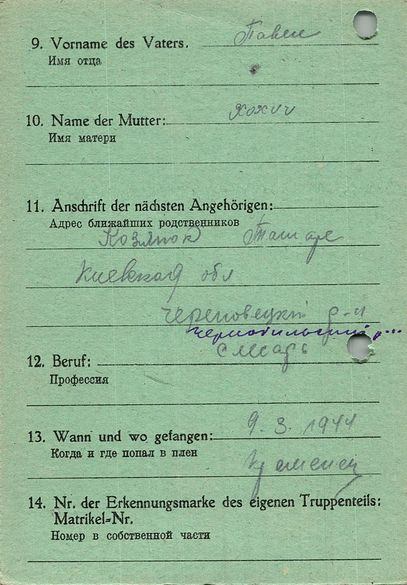 9. Vorname des Vaters. Павел
Имя отца
10. Name der Mutter:
Имя матери
11. Anschrift der nächsten Angehörigen:
Адрес ближайших родственников
Козлюк
Киевская обл
р-н
Чернобильский р...
12. Beruf: слесарь
Профессия
13. Wann und wo gefangen: 9. 3. 1944
Когда и где попал в плен
Кременец
14. Nr. der Erkennungsmarke des eigenen Truppenteils:
Matrikel-Nr.
Номер в собственной части